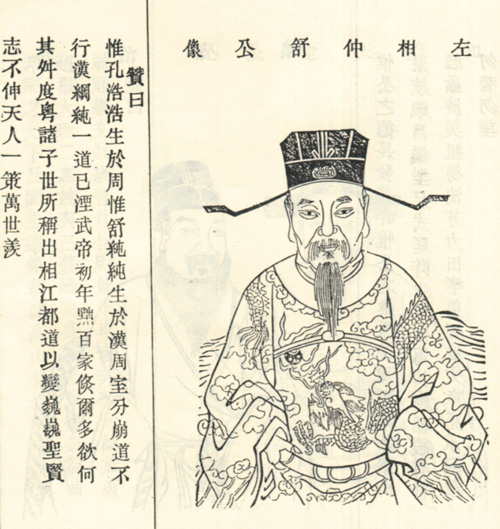 左相仲舒公像
贊曰
惟孔浩浩生於周惟舒純純生於漢周室分崩道不
行漢綱純一道已湮武帝初年黜百家倐爾多欲何
其舛度粵諸子世所稱出相江都道以變巍巍聖賢
志不伸天人一策萬世羨